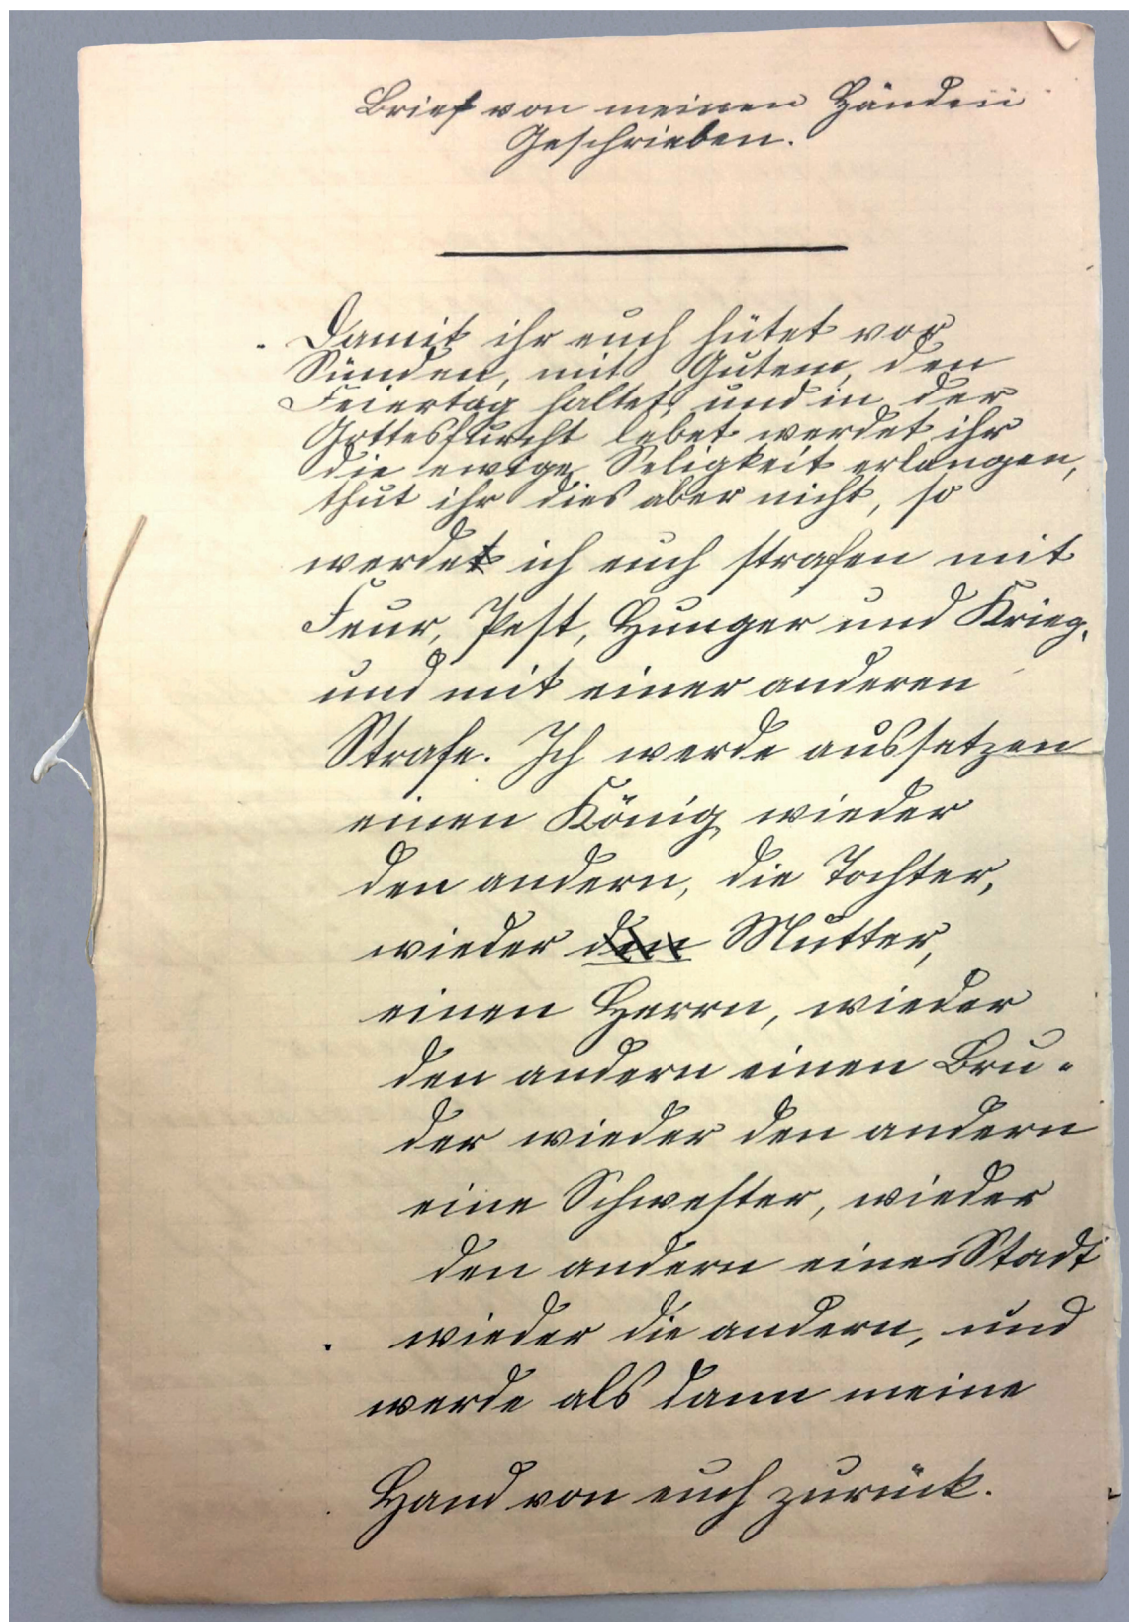 Brief von meinen Händen
Geschrieben.
Damit ihr euch hütet vor
Sünden, mit Gutem, den
Feiertag haltet, und in der
Gottesfurcht lebet werdet ihr
die ewige Seligkeit erlangen,
thut ihr dies aber nicht, so
werdet ich euch strafen mit
Feur, Pest, Hunger und Krieg,
und mit einer anderen
Strafe. Ich werde aussetzen
einen König wieder
den andern, die Tochter,
wieder den Mutter,
einen Herrn, wieder
den andern einen Bru-
der wieder den andern
eine Schwester, wieder
den andern eine Stadt
wieder die andern, und
werde als dann meine
Hand von euch zurück.